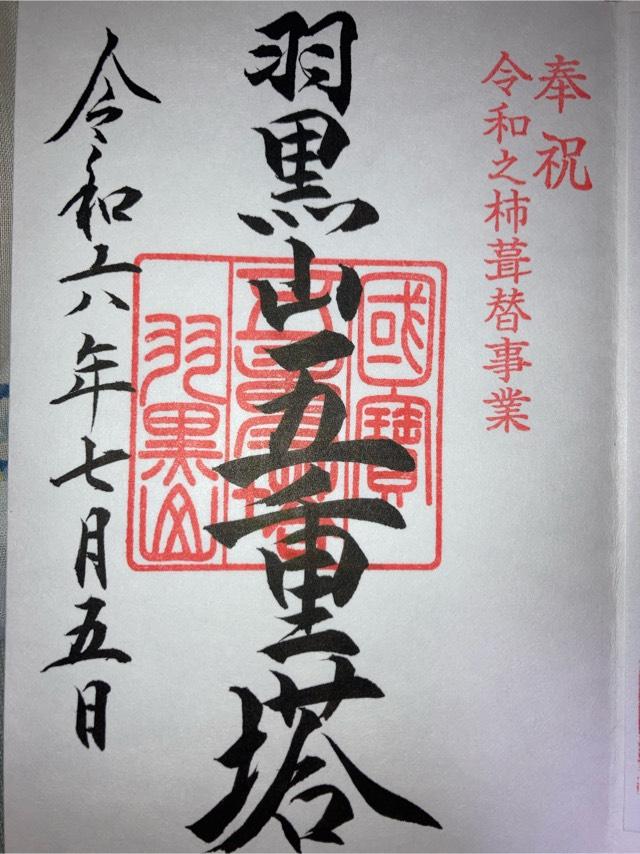 奉祝
令和之杮葺替事業
羽黒山五重塔
國寳
五重塔
羽黒山
令和六年七月五日